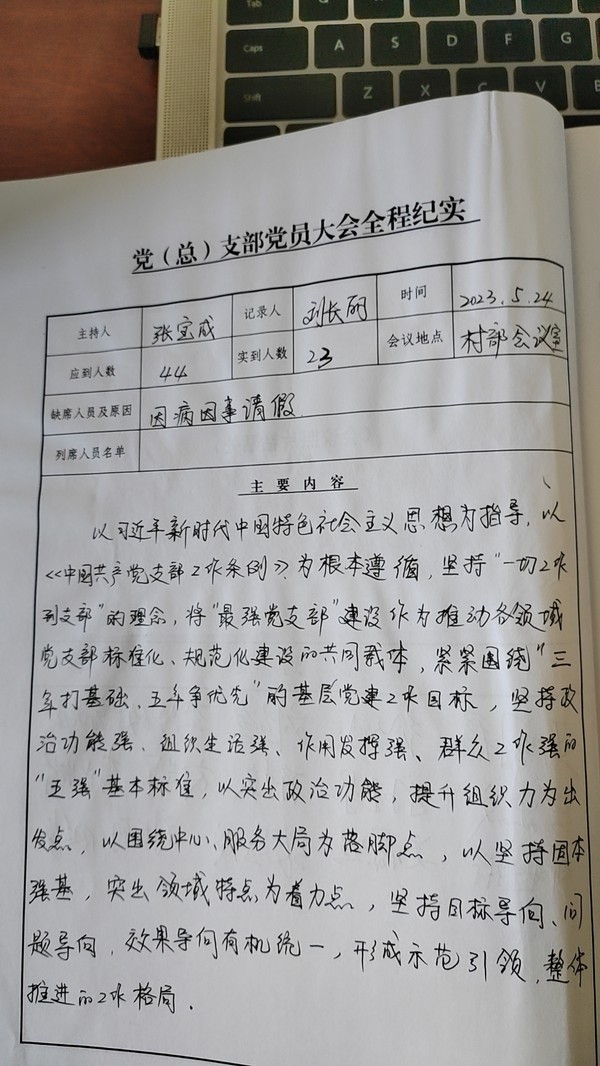 Tab
Caps A S D F
Shift Z X C V
党（总）支部党员大会全程纪实
主持人 张宝成 记录人 刘长丽 时间 2023.5.24
应到人数 44 实到人数 23 会议地点 村部会议室
缺席人员及原因 因病因事请假
列席人员名单
主要内容
以习近平新时代中国特色社会主义思想为指导，以
《中国共产党支部工作条例》为根本遵循，坚持“一切工作
到支部”的理念，将“最强党支部”建设作为推动各领域
党支部标准化、规范化建设的共同载体，紧紧围绕“三
年打基础、五年争优先”的基层党建工作目标，坚持政
治功能强、组织生活强、作用发挥强、群众工作强的
“五强”基本标准，以突出政治功能，提升组织力为出
发点，以围绕中心、服务大局为落脚点，以坚持固本
强基，突出领域特点为着力点，坚持目标导向、问
题导向，效果导向有机统一，形成示范引领，整体
推进的工作格局．